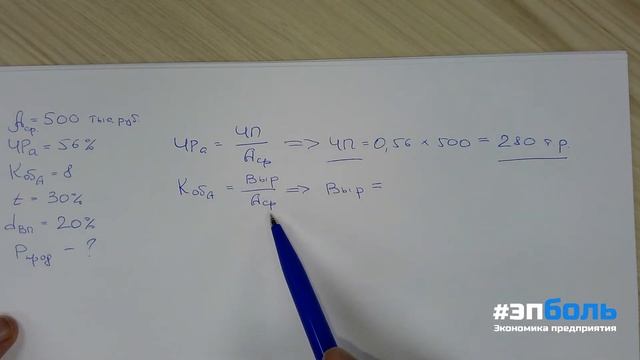 Aср. = 500 тыс. руб.
ЧРа = 56%
КобА = 8
t = 30%
dВП = 20%
Рпрод — ?
ЧРа = ЧП / Аср => ЧП = 0,56 × 500 = 280 т.р.
КобА = Выр / Аср => Выр =
#ЭПБОЛЬ
Экономика предприятия